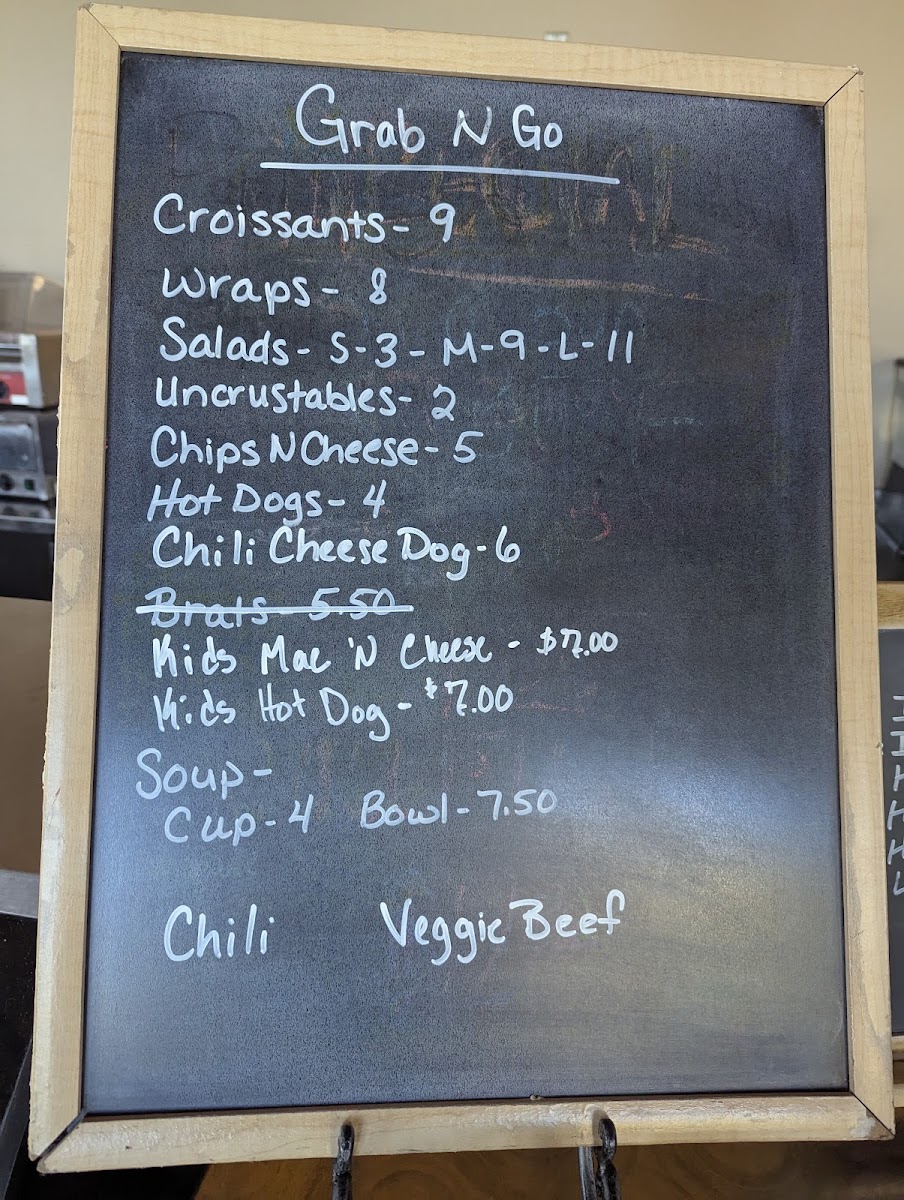 Grab N Go
Croissants - 9
Wraps - 8
Salads - S - 3 - M - 9 - L - 11
Uncrustables - 2
Chips N Cheese - 5
Hot Dogs - 4
Chili Cheese Dog - 6
Brats - 5.50
Kids Mac 'N Cheese - $7.00
Kids Hot Dog - $7.00
Soup -
Cup - 4 Bowl - 7.50
Chili Veggie Beef